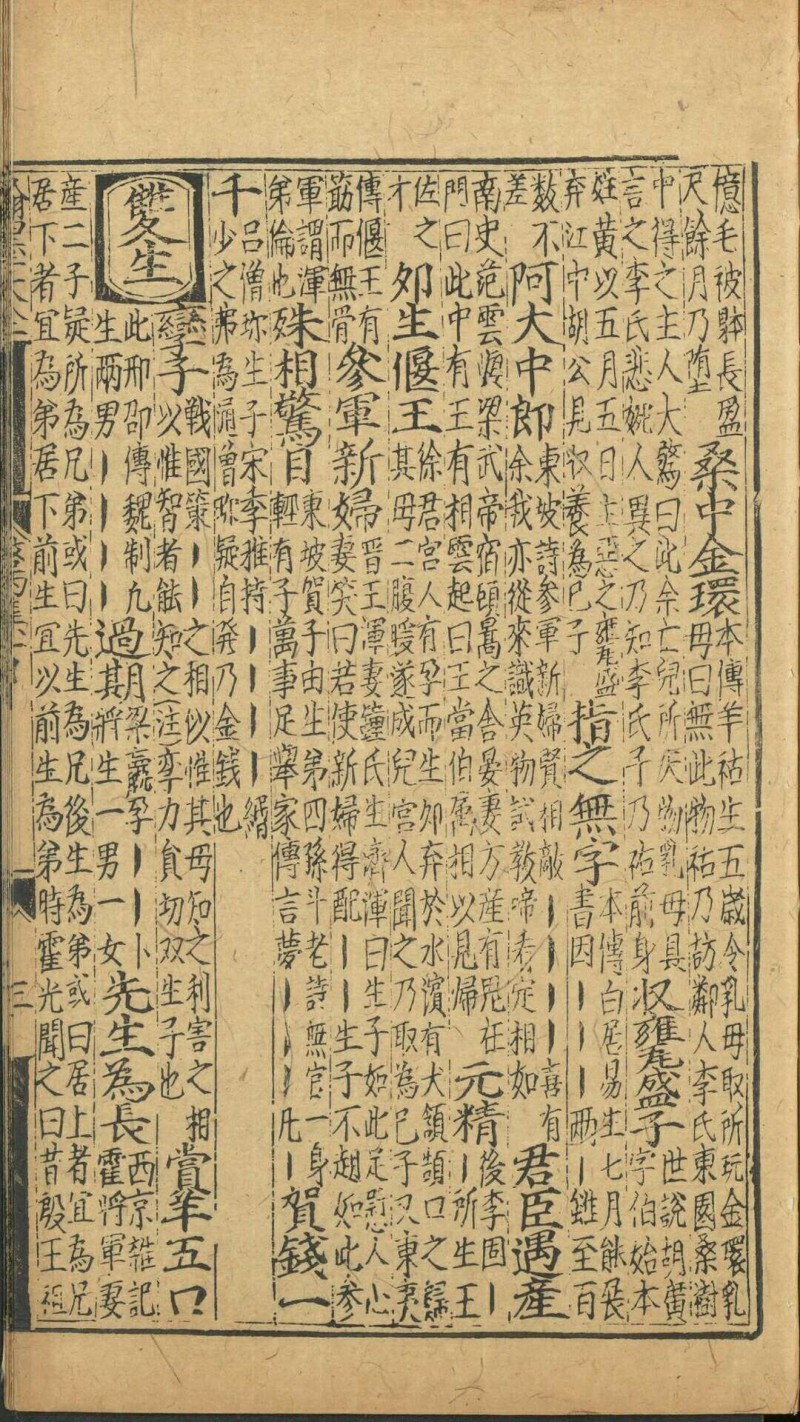 憶毛被躰長盈
尺餘月乃墮
桑中金環
本傳羊祜生五歲令乳母取所玩金環乳
母曰無此物祜乃訪鄰人李氏東國桑樹
中得之主人大驚曰此余亡兒所失物乳母具
言之李氏悲惋人異之乃知李氏子乃祜前身
収甕盛子
世說胡廣
字伯始本
姓黃以五月五日生惡之甕盛
弃江中胡公見收養為己子
指之無字
本傳白居易生七月能展
書因｜｜｜兩｜雖至百
数不
差
阿大中郎
東坡詩參軍新婦賢相敵｜｜｜｜喜有
余我亦從來識英物試教啼看定相如
君臣遇産
南史范雲梁武帝宿頓暠之舍晏妻方産有鬼在
門曰此中有王有相雲起曰王當伯屬相以見歸
元精
後李固｜
｜所生王
佐之
才
夘生偃王
徐君宮人有孕而生夘弃於水濱有犬頷口之歸
其母二腹暖遂成兒宮人聞之乃取為己子又東夷
傳偃王有
筋而無骨
參軍新婦
晉王渾妻鍾氏生濟渾曰生子如此足慰人心
妻笑曰若使新婦得配｜｜生子不趐如此參
軍謂渾
弟倫也
殊相驚目
東坡賀子由生第四孫斗老詩無官一身
輕有子萬事足舉家傳言夢｜｜｜｜凡｜
賀錢一
千
吕僧珎生子宋季雅持｜｜｜｜緡
少之弟為涌曾珎疑自発乃金錢也
雙生
孿子
戰國策｜｜之相似惟其母知之利害之相
以惟智者能知之注孿力員切双生子也
賞羊五口
此邢卲傳魏制九
生兩男｜｜｜｜
過期
梁嬴孕｜｜卜
將生一男一女
先生為長
西京雜記
霍將軍妻
産二子疑所為兄弟或曰先生為兄後生為弟或曰居上者宜為兄
居下者宜為弟居下前生宜以前生為弟時霍光聞之曰昔殷王祖
三